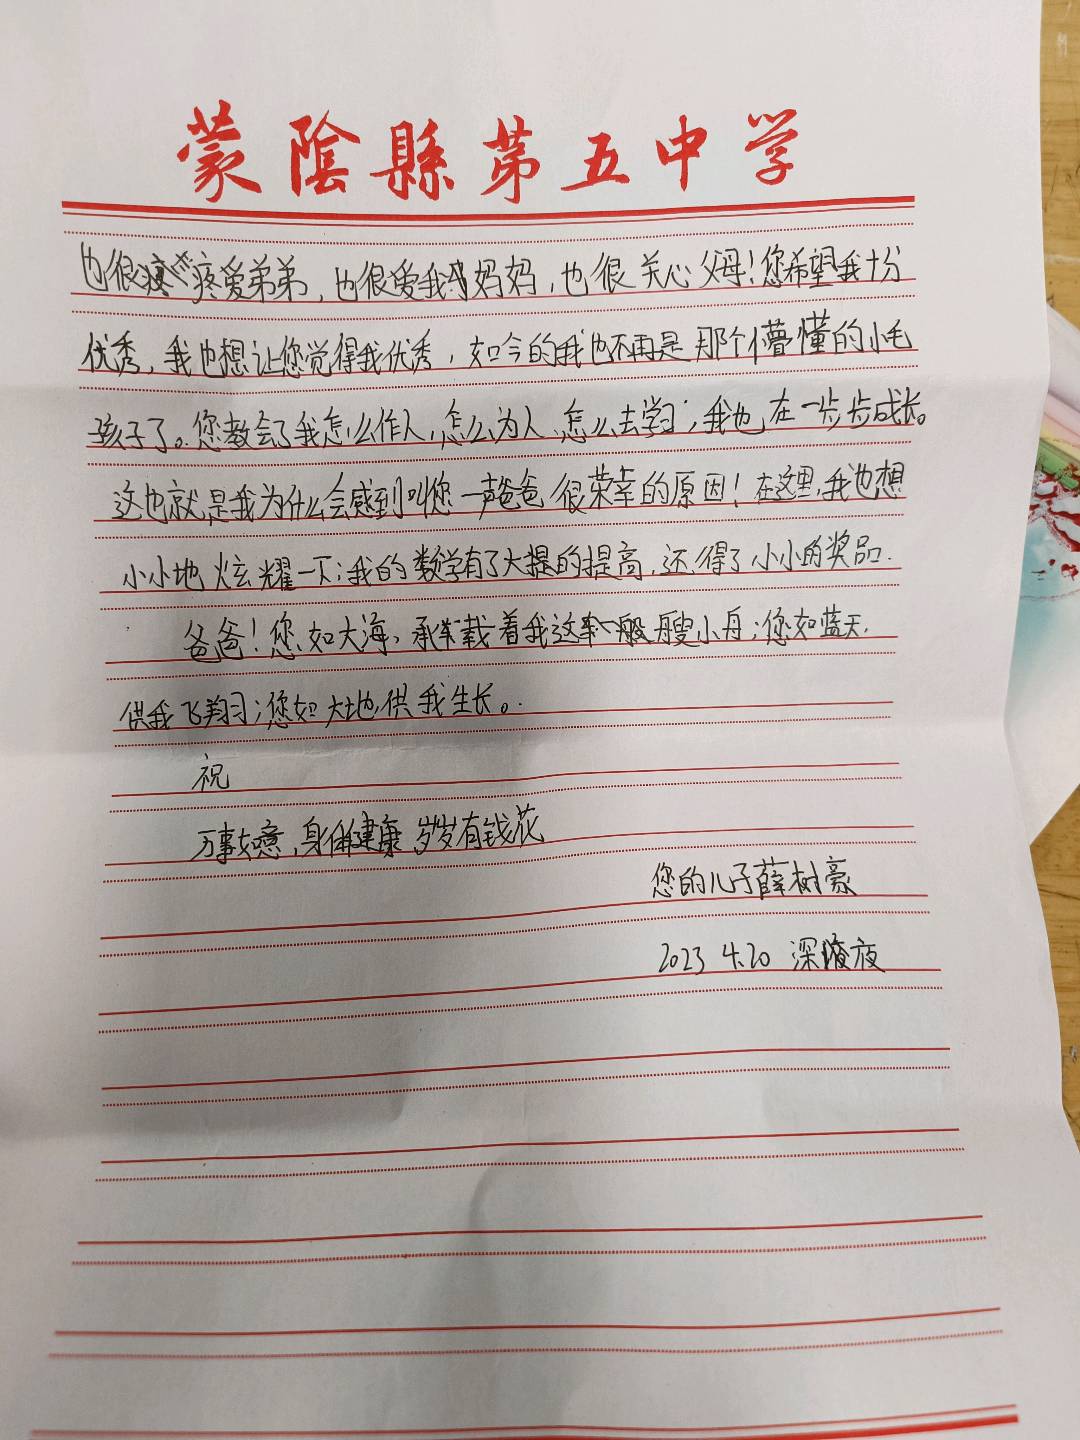 蒙陰縣第五中学
也很疼爱弟弟，也很爱我妈妈，也很关心父母！您希望我十分
优秀，我也想让您觉得我优秀，如今的我也不再是那个懵懂的小毛
孩子了。您教会了我怎么作人，怎么为人，怎么去学习，我也在一步步成长。
这也就是我为什么会感到叫您一声爸爸很荣幸的原因！在这里，我也想
小小地炫耀一下：我的数学有了大提的提高，还得了小小的奖品.
爸爸！您如大海，承载着我这一艘小舟；您如蓝天，
供我飞翔；您如大地，供我生长。
祝
万事如意，身体健康，岁岁有钱花
您的儿子薛树豪
2023 4.20 深夜